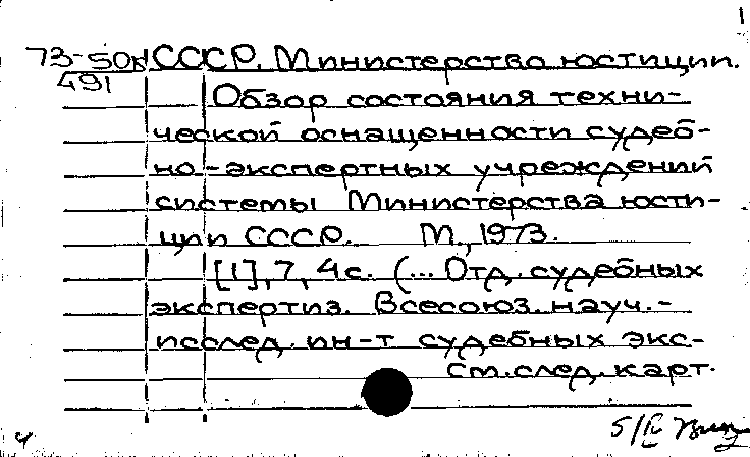 1
73-50к СССР. Министерство юстиции.
491
Обзор состояния техни-
ческой оснащенности судеб-
но-экспертных учреждений
системы Министерства юсти-
ции СССР. М., 1973.
[1], 7, 4с. (... Отд. судебных
экспертиз. Всесоюз. науч.-
исслед. ин-т судебных экс-
См. след. карт.
5/IV